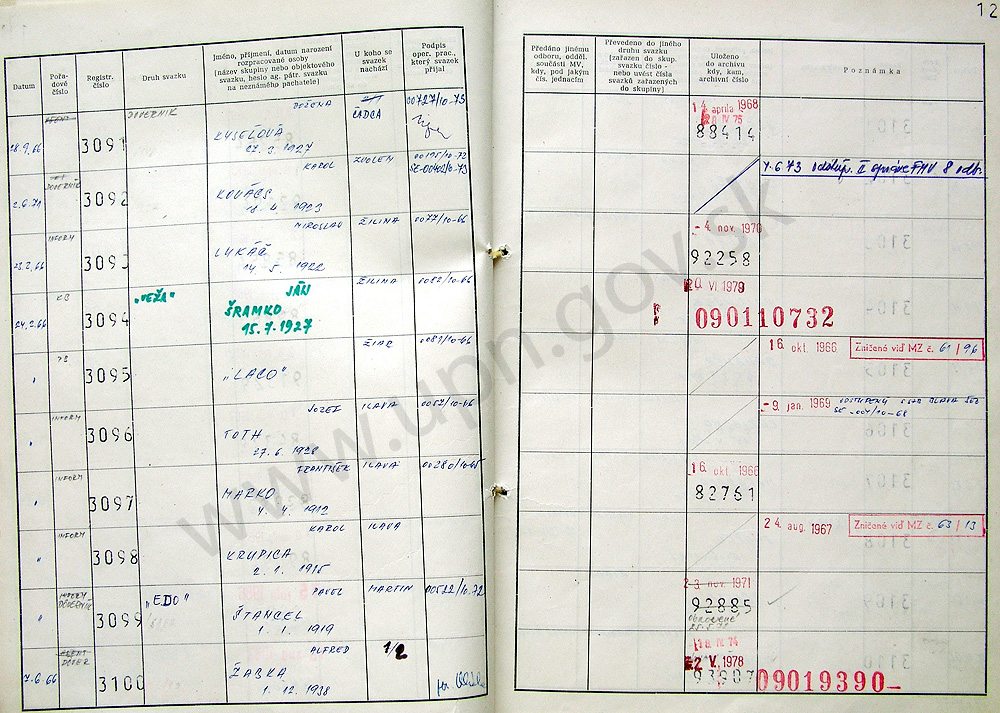 12
Datum
Pořa-
dové
číslo
Registr.
číslo
Druh svazku
Jméno, příjmení, datum narození
rozpracované osoby
(název skupiny nebo objektového
svazku, heslo ag. pátr. svazku
na neznámého pachatele)
U koho se
svazek
nachází
Podpis
oper. prac.,
který svazek
přijal
Předáno jinému
odboru, odděl.
součásti MV,
kdy, pod jakým
čís. jednacím
Převedeno do jiného
druhu svazku
(zařazen do skup.
svazku číslo -
nebo uvést čísla
svazků zařazených
do skupiny)
Uloženo
do archivu
kdy, kam,
archivní číslo
Poznámka
28.9.66
3091
DOVERNÍK
BOŽENA
KYSEĽOVÁ
27. 3. 1927
ČADCA
00727/10-73
14 aprila 1968
88414
2.6.71
DOVERNÍK
3092
KAROL
KOVÁCS
18. 4. 1923
ZVOLEN
00195/10-72
7.6.73 odstúp. II správe FMV 8 odb.
23.2.66
INFORM
3093
MIROSLAV
LUKÁČ
14. 5. 1922
ŽILINA
0077/10-66
-4. nov. 1970
92258
24.2.66
KB
3094
"VEŽA"
JÁN
ŠRAMKO
15.7.1927
ŽILINA
0082/10-66
20 VI 1979
090110732
"
PB
3095
"LACO"
ŽIAR
0081/10-66
16. okt. 1966
Zničené viď MZ č. 61/96
"
INFORM
3096
JOZEF
TOTH
27. 6. 1928
ILAVA
0057/10-66
-9. jan. 1969
"
INFORM
3097
FRANTIŠEK
MARKO
4. 4. 1912
ILAVA
00280/10-65
16. okt. 1966
82761
"
INFORM
3098
KAROL
KRUPICA
2. 1. 1915
ILAVA
24. aug. 1967
Zničené viď MZ č. 63/13
"
INFORM
DOVERNÍK
3099
"EDO"
PAVEL
ŠTANCEL
1. 1. 1919
MARTIN
00522/10.72
23. nov. 1971
92885
obnovené
7.6.66
AGENT
DOVER
3100
ALFRED
ŽABKA
1. 12. 1938
1/2
18. IV. 74
22 V. 1978
93907
09019390-
www.upn.gov.sk